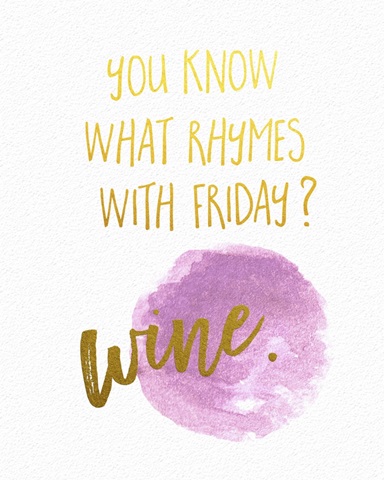 YOU KNOW
WHAT RHYMES
WITH FRIDAY?
wine.